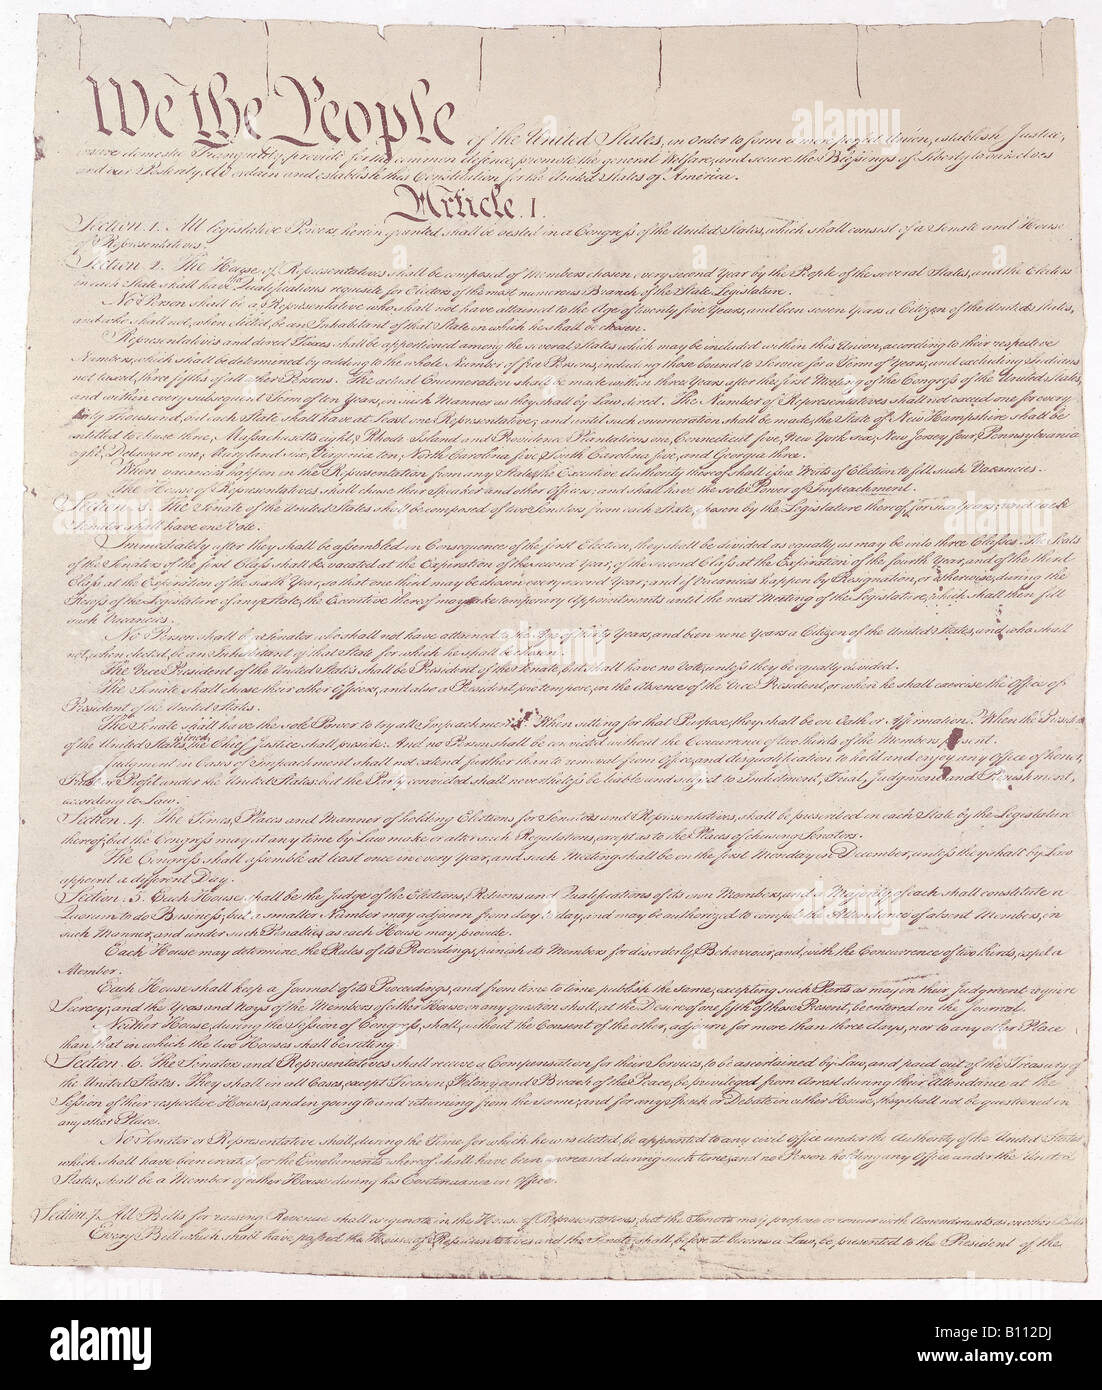 We the People of the United States, in Order to form a more perfect Union, establish Justice,
insure domestic Tranquility, provide for the common defence, promote the general Welfare, and secure the Blessings of Liberty to ourselves
and our Posterity, do ordain and establish this Constitution for the United States of America.
Article. I.
Section. 1. All legislative Powers herein granted shall be vested in a Congress of the United States, which shall consist of a Senate and House
of Representatives.
Section. 2. The House of Representatives shall be composed of Members chosen every second Year by the People of the several States, and the Electors
in each State shall have the Qualifications requisite for Electors of the most numerous Branch of the State Legislature.
No Person shall be a Representative who shall not have attained to the Age of twenty five Years, and been seven Years a Citizen of the United States,
and who shall not, when elected, be an Inhabitant of that State in which he shall be chosen.
Representatives and direct Taxes shall be apportioned among the several States which may be included within this Union, according to their respective
Numbers, which shall be determined by adding to the whole Number of free Persons, including those bound to Service for a Term of Years, and excluding Indians
not taxed, three fifths of all other Persons. The actual Enumeration shall be made within three Years after the first Meeting of the Congress of the United States,
and within every subsequent Term of ten Years, in such Manner as they shall by Law direct. The Number of Representatives shall not exceed one for every
thirty Thousand, but each State shall have at Least one Representative; and until such enumeration shall be made, the State of New Hampshire shall be
entitled to chuse three, Massachusetts eight, Rhode Island and Providence Plantations one, Connecticut five, New York six, New Jersey four, Pennsylvania
eight, Delaware one, Maryland six, Virginia ten, North Carolina five, South Carolina five, and Georgia three.
When vacancies happen in the Representation from any State, the Executive Authority thereof shall issue Writs of Election to fill such Vacancies.
The House of Representatives shall chuse their Speaker and other Officers; and shall have the sole Power of Impeachment.
Section. 3. The Senate of the United States shall be composed of two Senators from each State, chosen by the Legislature thereof, for six Years; and each
Senator shall have one Vote.
Immediately after they shall be assembled in Consequence of the first Election, they shall be divided as equally as may be into three Classes. The Seats
of the Senators of the first Class shall be vacated at the Expiration of the second Year, of the second Class at the Expiration of the fourth Year, and of the third
Class at the Expiration of the sixth Year, so that one third may be chosen every second Year; and if Vacancies happen by Resignation, or otherwise, during the
Recess of the Legislature of any State, the Executive thereof may make temporary Appointments until the next Meeting of the Legislature, which shall then fill
such Vacancies.
No Person shall be a Senator who shall not have attained to the Age of thirty Years, and been nine Years a Citizen of the United States, and who shall
not, when elected, be an Inhabitant of that State for which he shall be chosen.
The Vice President of the United States shall be President of the Senate, but shall have no Vote, unless they be equally divided.
The Senate shall chuse their other Officers, and also a President pro tempore, in the Absence of the Vice President, or when he shall exercise the Office of
President of the United States.
The Senate shall have the sole Power to try all Impeachments. When sitting for that Purpose, they shall be on Oath or Affirmation. When the President
of the United States is tried, the Chief Justice shall preside: And no Person shall be convicted without the Concurrence of two thirds of the Members present.
Judgment in Cases of Impeachment shall not extend further than to removal from Office, and disqualification to hold and enjoy any Office of honor,
Trust or Profit under the United States: but the Party convicted shall nevertheless be liable and subject to Indictment, Trial, Judgment and Punishment,
according to Law.
Section. 4. The Times, Places and Manner of holding Elections for Senators and Representatives, shall be prescribed in each State by the Legislature
thereof; but the Congress may at any time by Law make or alter such Regulations, except as to the Places of chusing Senators.
The Congress shall assemble at least once in every Year, and such Meeting shall be on the first Monday in December, unless they shall by Law
appoint a different Day.
Section. 5. Each House shall be the Judge of the Elections, Returns and Qualifications of its own Members, and a Majority of each shall constitute a
Quorum to do Business; but a smaller Number may adjourn from day to day, and may be authorized to compel the Attendance of absent Members, in
such Manner, and under such Penalties as each House may provide.
Each House may determine the Rules of its Proceedings, punish its Members for disorderly Behaviour, and, with the Concurrence of two thirds, expel a
Member.
Each House shall keep a Journal of its Proceedings, and from time to time publish the same, excepting such Parts as may in their Judgment require
Secrecy; and the Yeas and Nays of the Members of either House on any question shall, at the Desire of one fifth of those Present, be entered on the Journal.
Neither House, during the Session of Congress, shall, without the Consent of the other, adjourn for more than three days, nor to any other Place
than that in which the two Houses shall be sitting.
Section. 6. The Senators and Representatives shall receive a Compensation for their Services, to be ascertained by Law, and paid out of the Treasury of
the United States. They shall in all Cases, except Treason, Felony and Breach of the Peace, be privileged from Arrest during their Attendance at the
Session of their respective Houses, and in going to and returning from the same; and for any Speech or Debate in either House, they shall not be questioned in
any other Place.
No Senator or Representative shall, during the Time for which he was elected, be appointed to any civil Office under the Authority of the United States,
which shall have been created, or the Emoluments whereof shall have been encreased during such time; and no Person holding any Office under the United
States, shall be a Member of either House during his Continuance in Office.
Section. 7. All Bills for raising Revenue shall originate in the House of Representatives; but the Senate may propose or concur with Amendments as on other Bills.
Every Bill which shall have passed the House of Representatives and the Senate, shall, before it become a Law, be presented to the President of the
alamy
Image ID: B112DJ
www.alamy.com